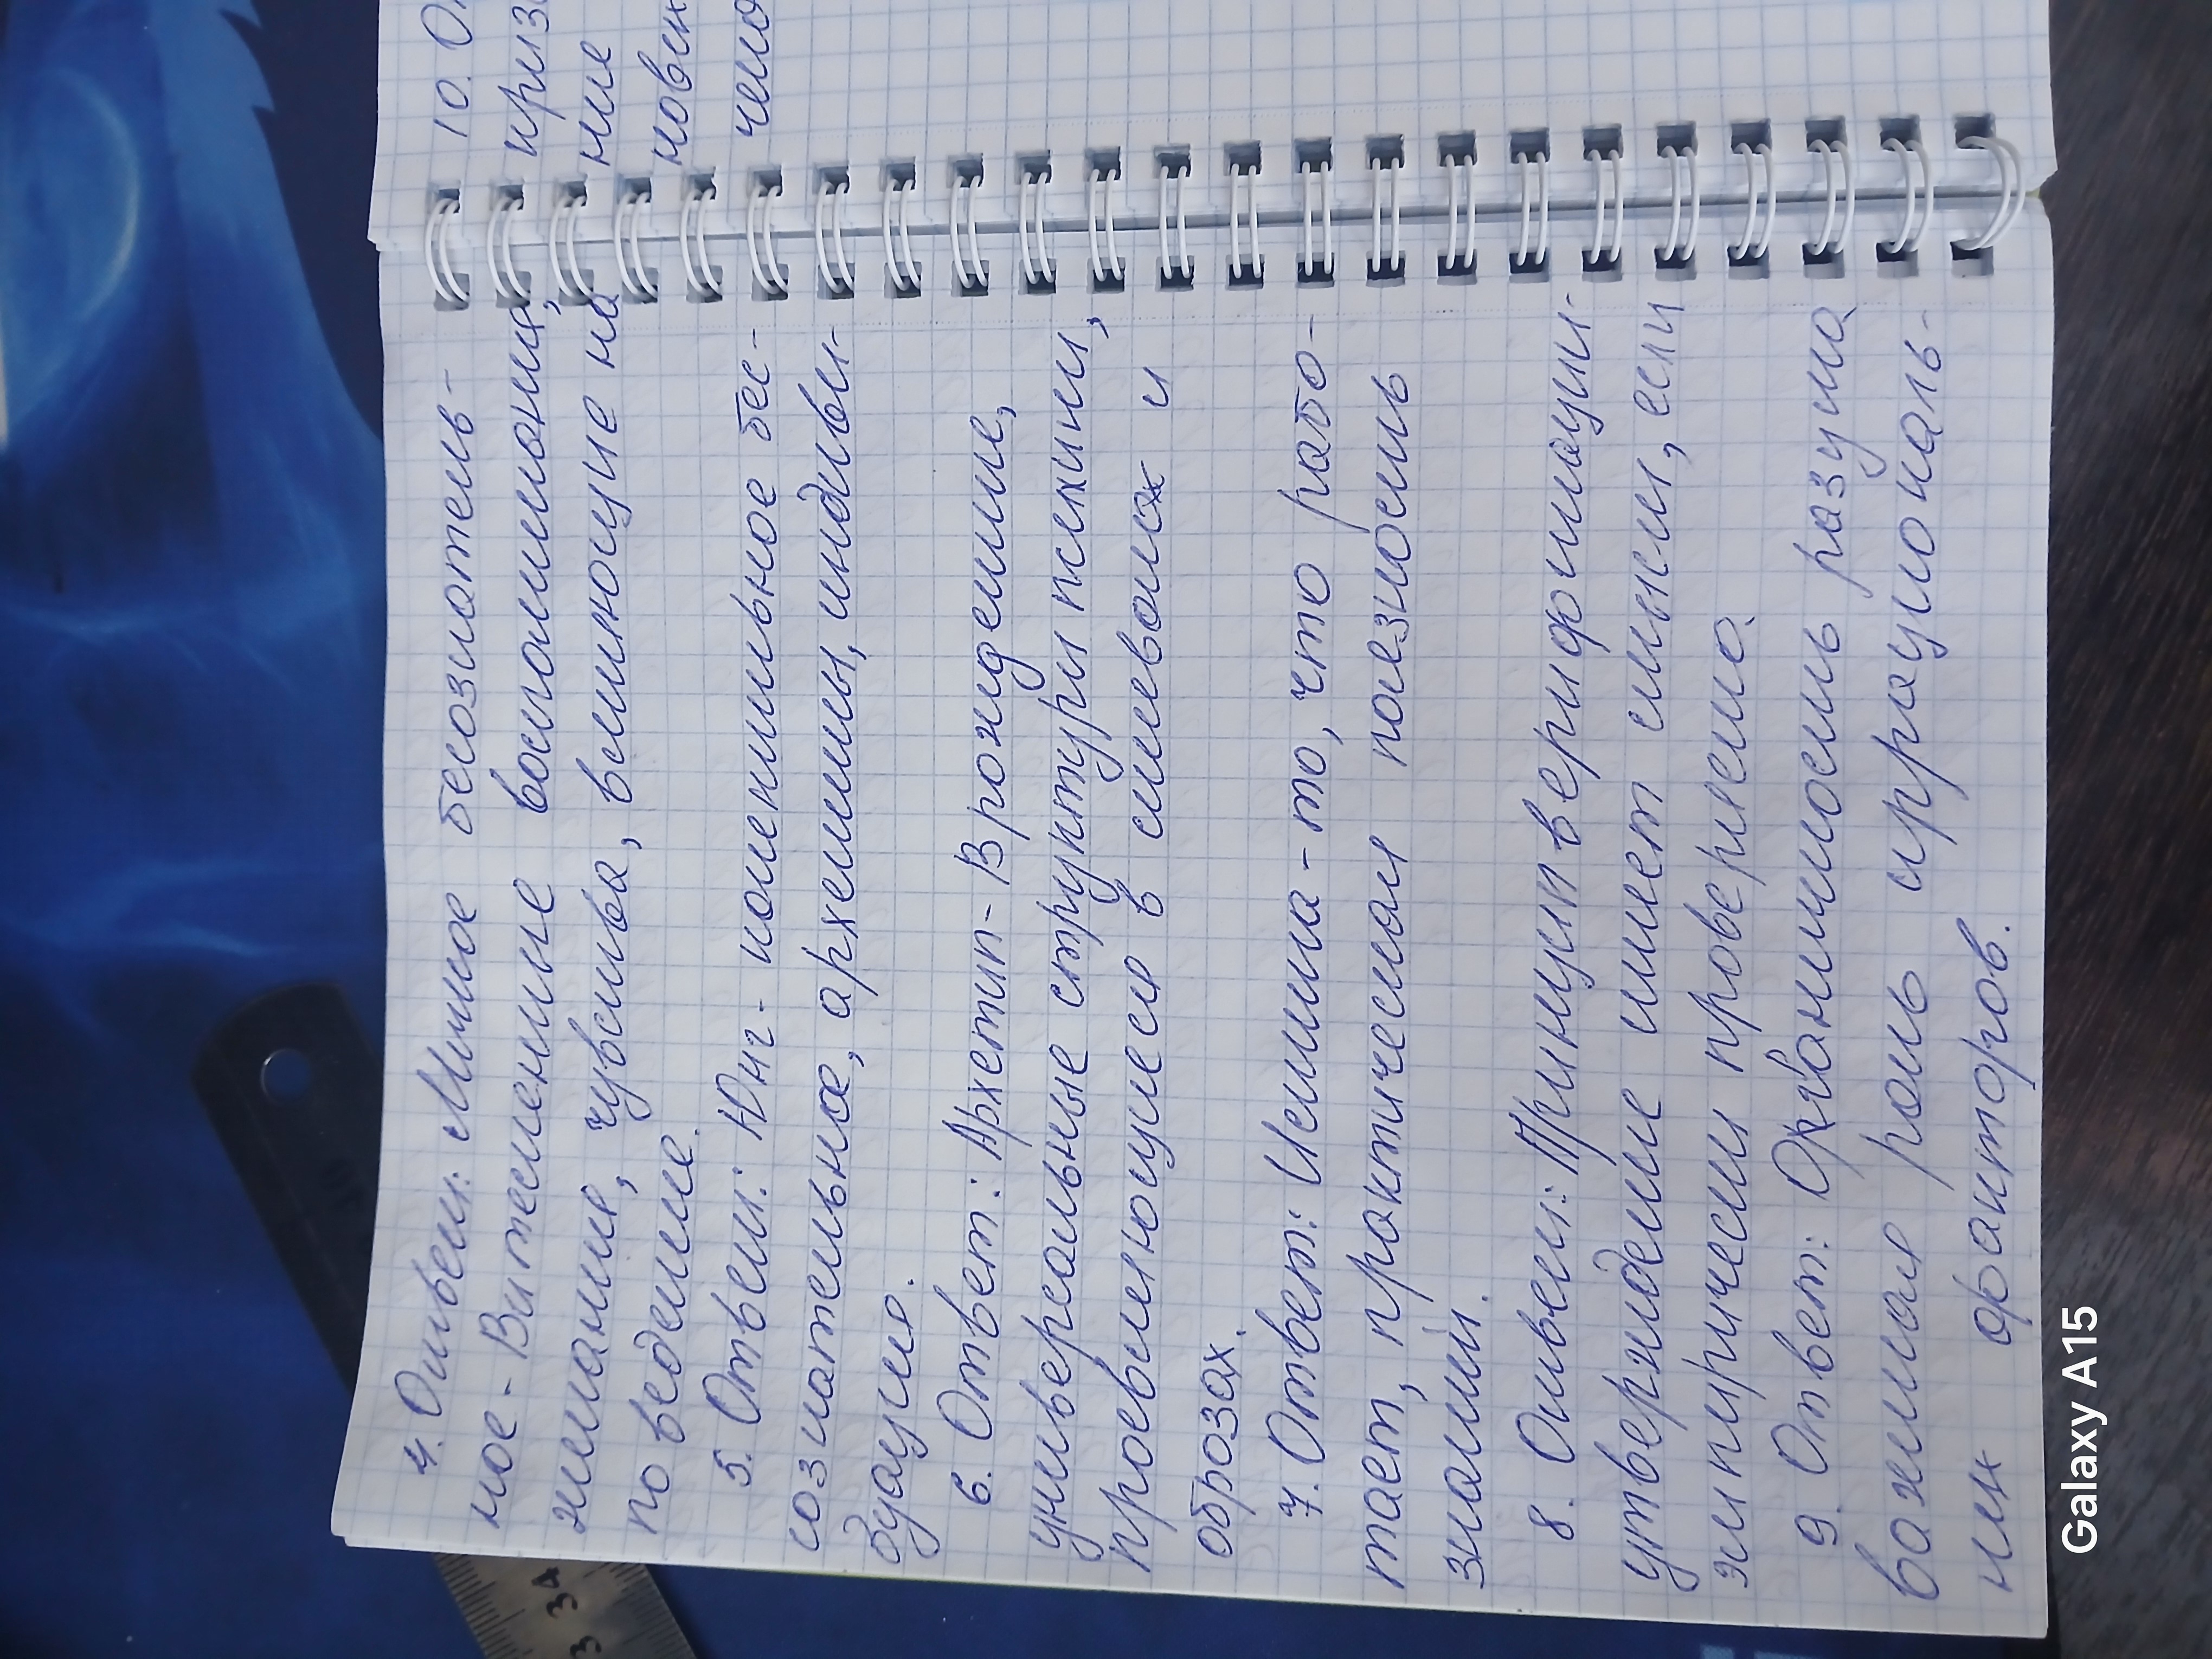 4. Ответ: Личное бесознатель-
ное - Вытесненные воспоминания,
желания, чувства, влияющие на
поведение.
5. Ответ: Юнг - коллективное бес-
сознательное, архетипы, индиви-
дуация.
6. Ответ: Архетип - Врожденные,
универсальные структуры психики,
проявляющиеся в символах и
образах.
7. Ответ: Истина - то, что рабо-
тает, практическая полезность
знаний.
8. Ответ: Принцип верификации -
утверждение имеет смысл, если
эмпирически проверяемо.
9. Ответ: Ограниченность разума
важная роль иррациональ-
ных факторов.
10. От
ирра
ние
новен
чело
34
Galaxy A15